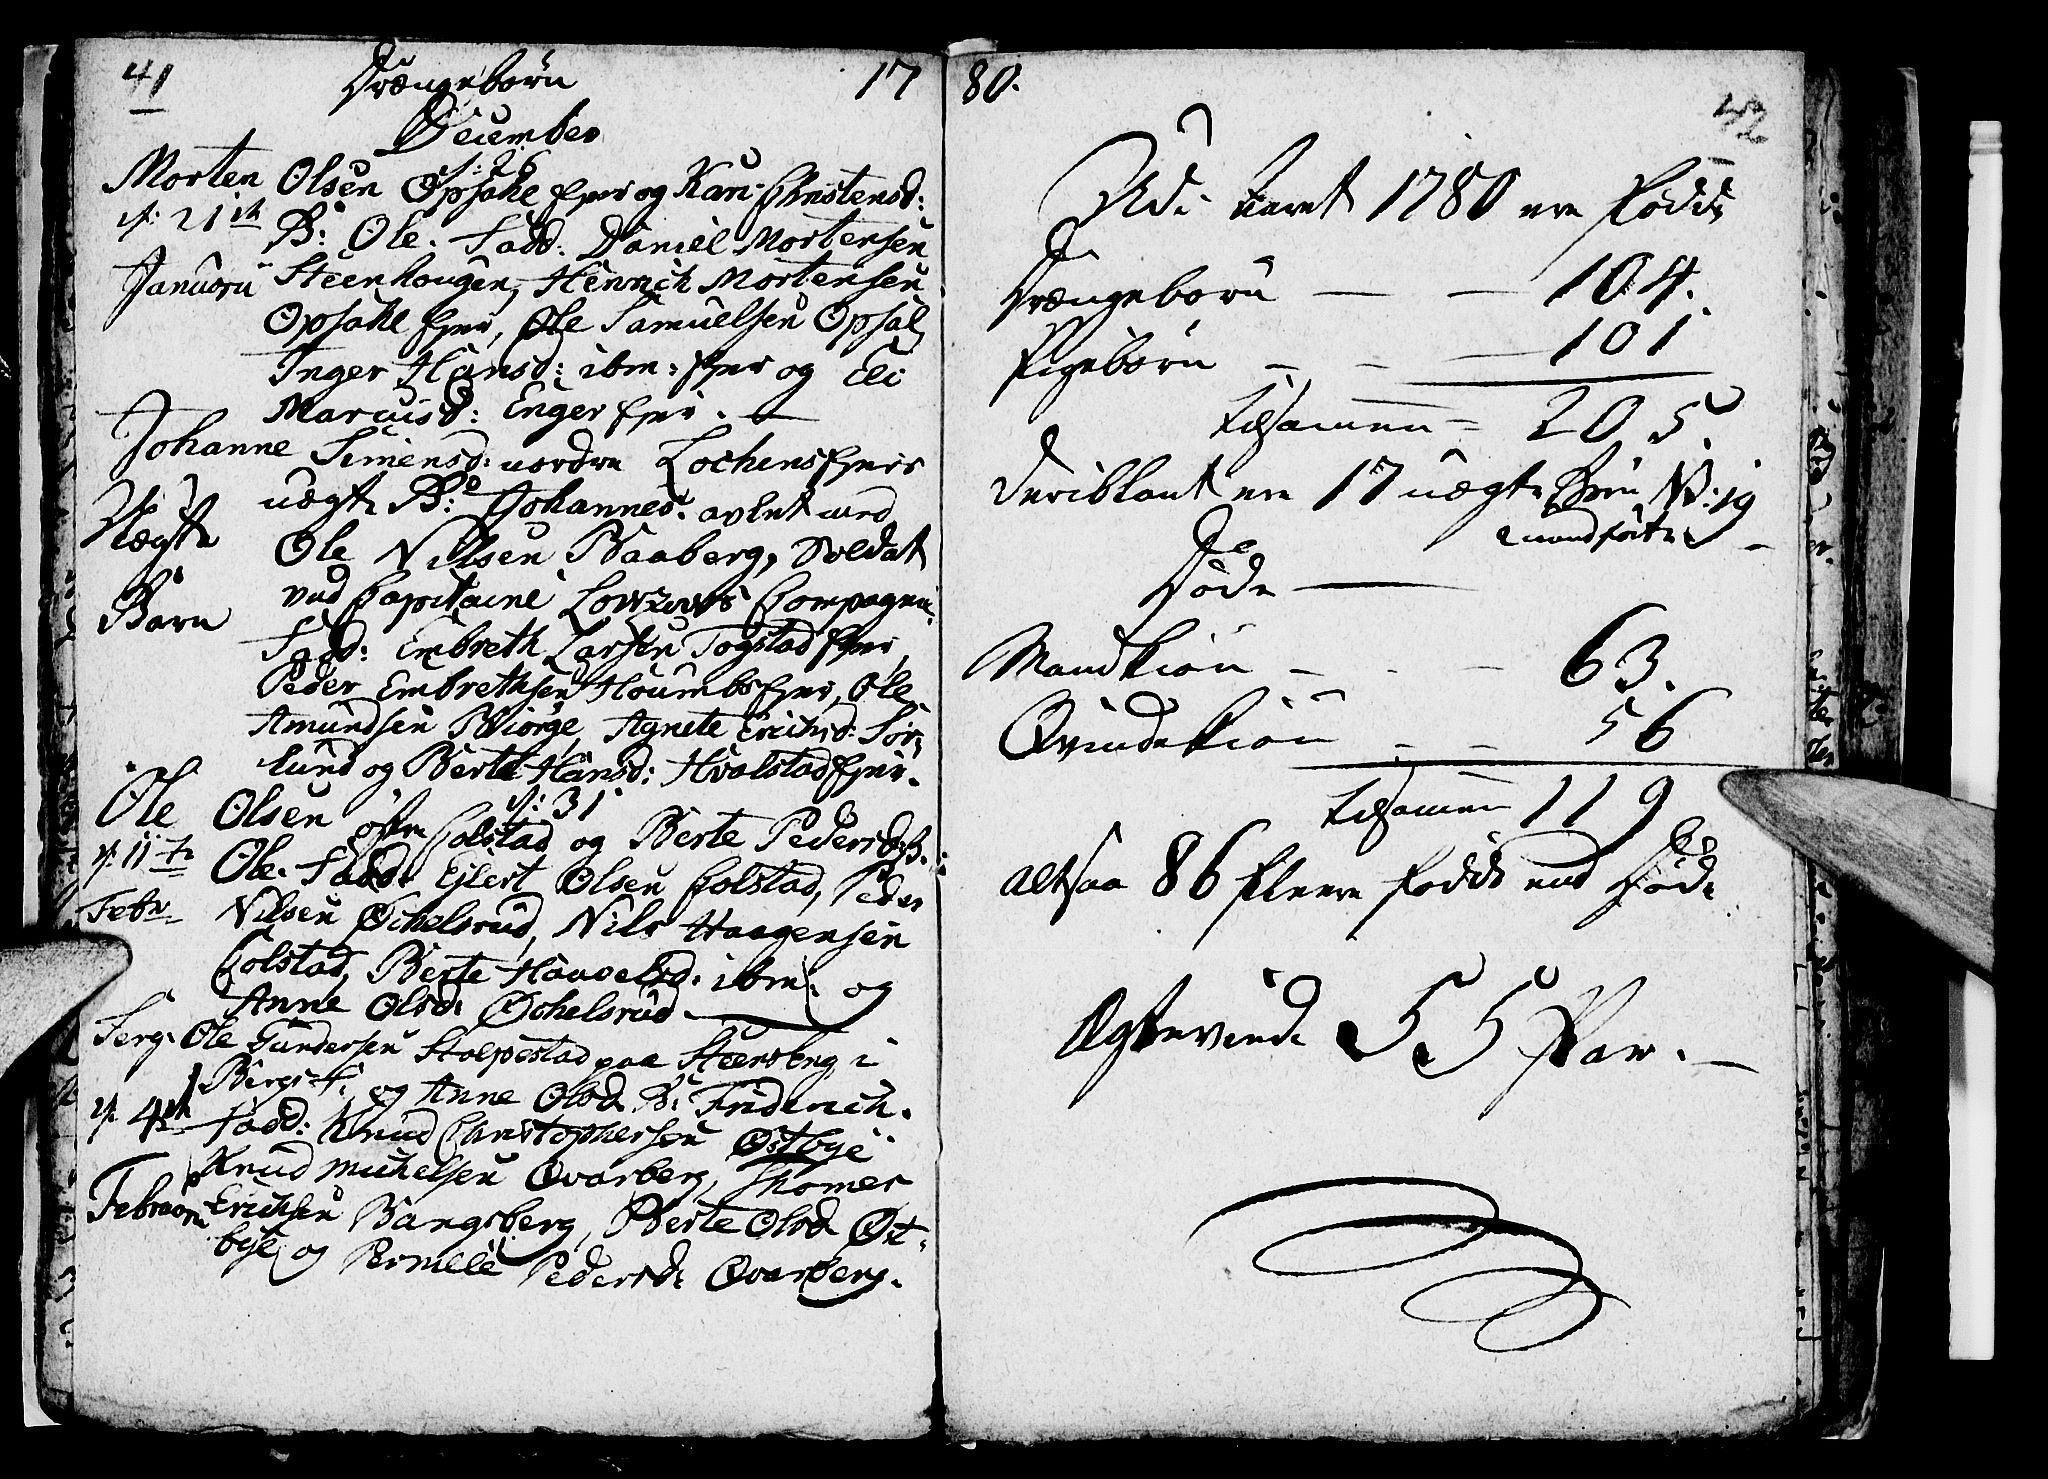 41 Drængebørn 17
December
d: 26
Morten Olsen Opsahl Ejer og Kari Christensd:
d: 21de B: Ole. Fadd: Daniel Mortensen
Januarii Steenhougen, Henrich Mortensen
Opsahl Ejer, Ole Samuelsen Opsal
Inger Hansd: ibm: Ejer og Eli
Marcusd: Enger Ejer.
Johanne Simensd: nordre Lochens Ejers
Uægte uægte B: Johannes. avlet med
Ole Nilsen Baaberg, Soldat
Barn ved Capitaine Lowzows Compagnie.
Fadd: Embreth Larsen Togstad Ejer,
Peder Embrethsen Houmbs Ejer, Ole
Amundsen Biørge, Agnete Erichsd: Sør-
lund og Berte Hansd: Hvalstad Ejer.
d: 31
Ole Olsen østre Colstad og Berte Pedersd: B.
d: 11te Ole. Fadd: Ejlert Olsen Colstad, Peder
Febr Nilsen Øchelsrud, Nils Haagensen
Colstad, Berte Haagensd: ibm: og
Anne Olsd: Øchelsrud
Serg: Ole Gundersen Stolpestad paa Steensberg i
Bergs: og Anne Olsd. B: Friderich.
d: 4de Fadd: Knud Christophersen Østbye
Knud Michelsen Qvarberg, Thomes
Februarii Erichsen Bangsberg, Berte Olsd Øst-
bye og Pernille Pedersd: Qvarberg.
80. 42
Udi Aaret 1780 ere fødde
Drængebørn — — 104.
Pigebørn — — 101
tilsamen = 205.
deriblant ere 17 uægte Børn NB: 19
Døde
Mandkiøn — — 63.
Qvindekiøn — — 56
tilsamen 119
altsaa 86 fleere fødde end døde
Ægteviede 55 Par.